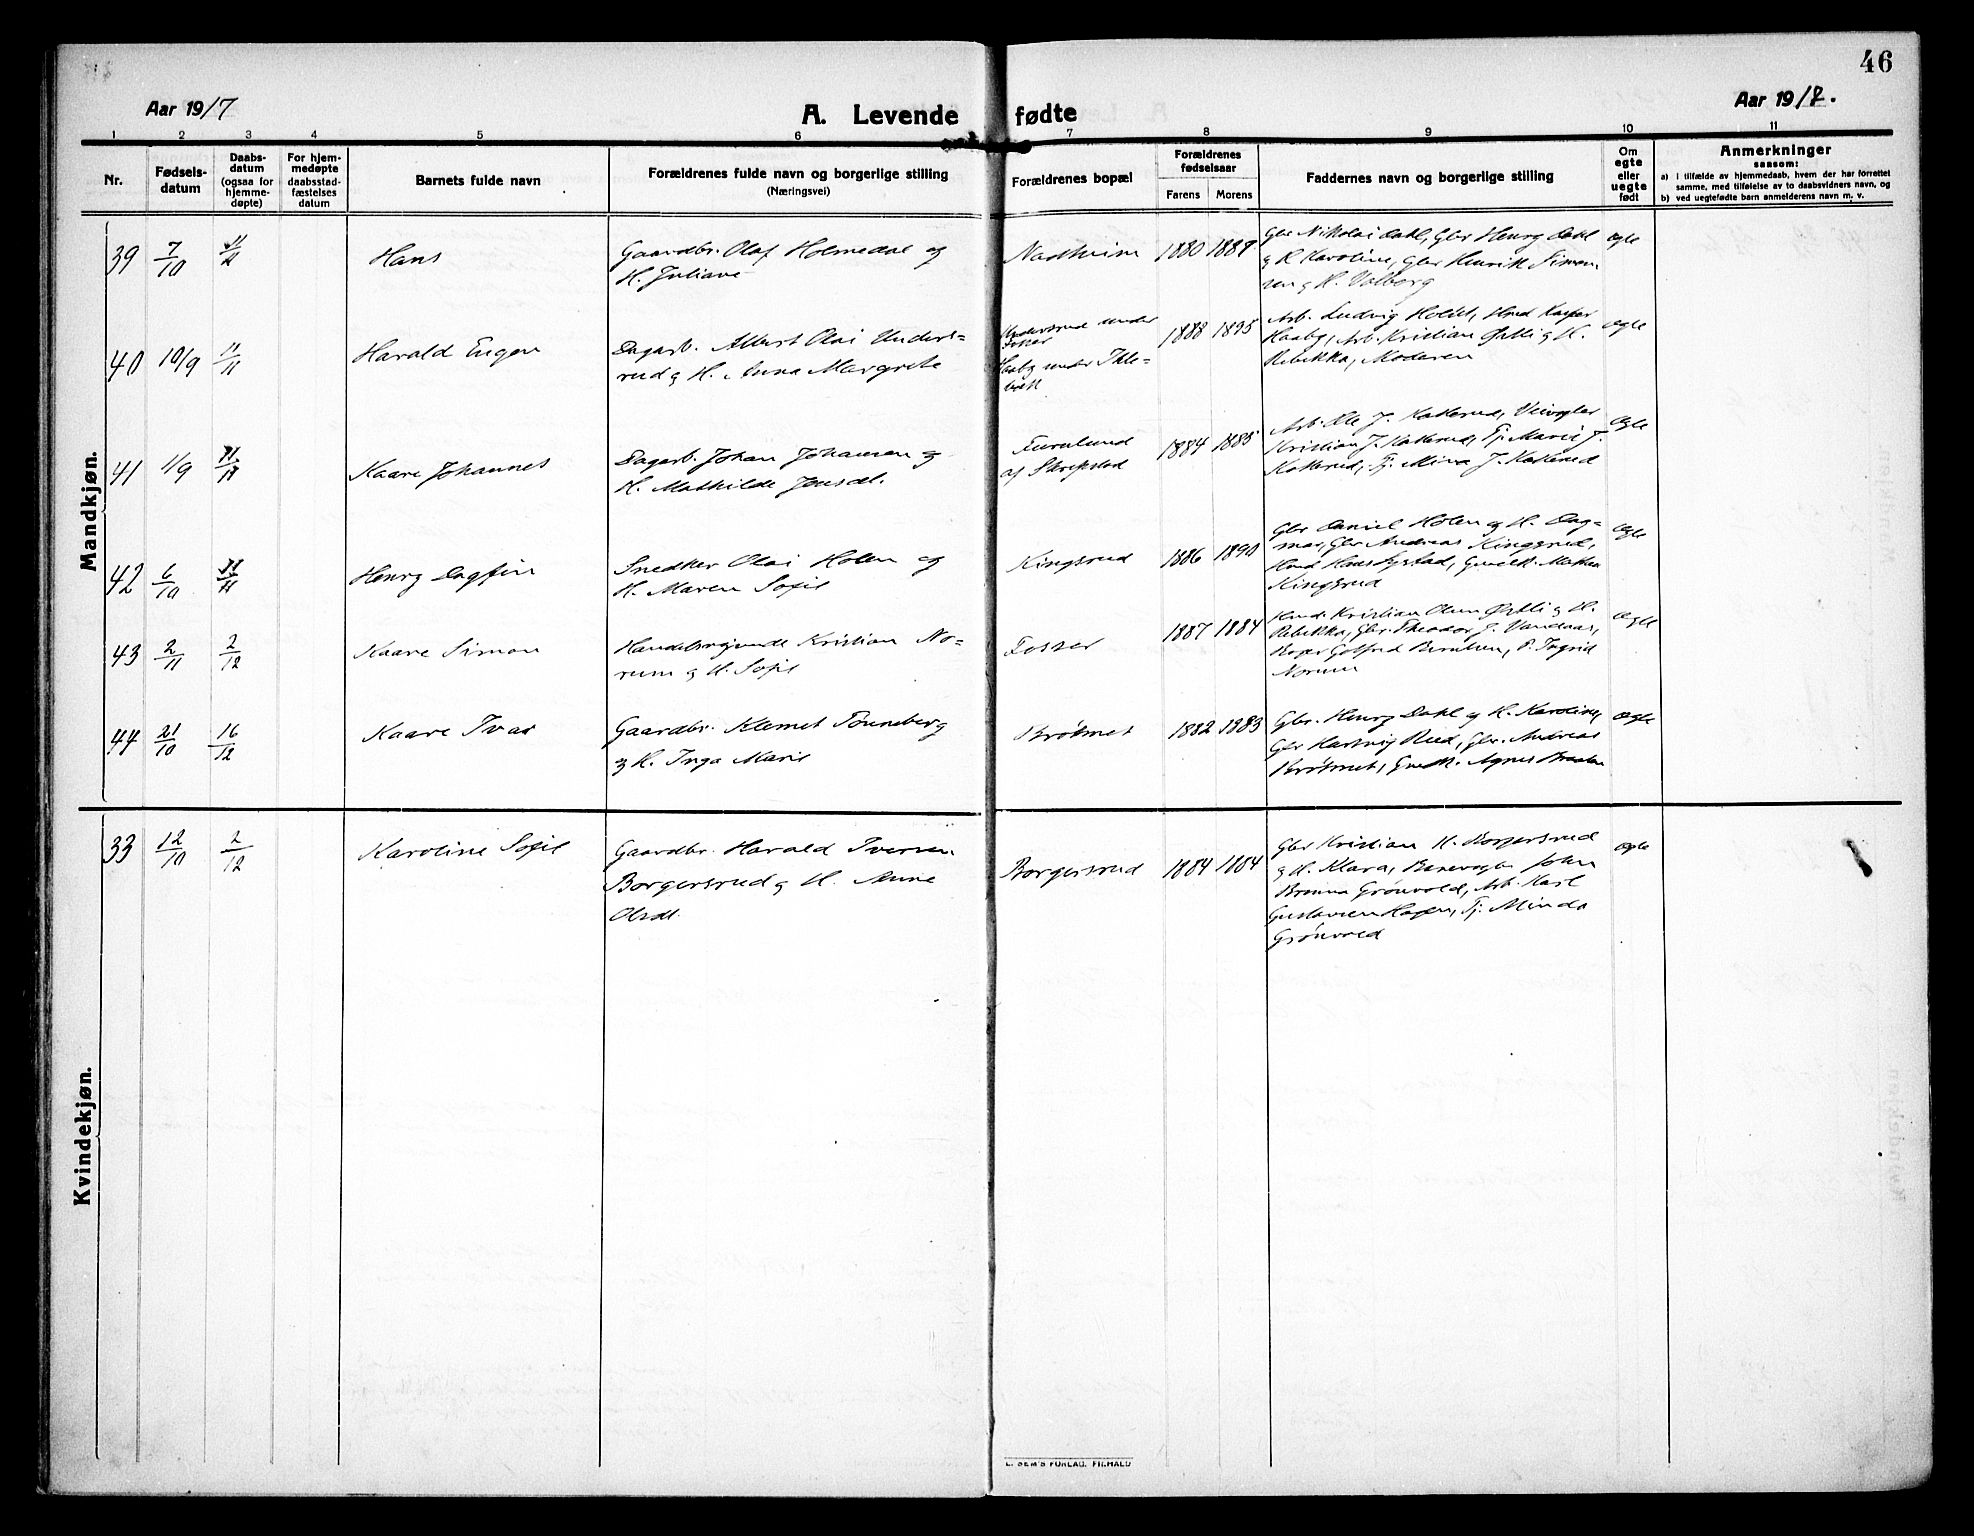 46
Aar 1917
A. Levende fødte
Aar 1917.
1 2 3 4 5 6 7 8 9 10 11
Nr.
Fødsels-
datum
Daabs-
datum
(ogsaa for
hjemme-
døpte)
For hjem-
medøpte
daabsstad-
fæstelses
datum
Barnets fulde navn
Forældrenes fulde navn og borgerlige stilling
(Næringsvei)
Forældrenes bopæl
Forældrenes
fødselsaar
Farens Morens
Faddernes navn og borgerlige stilling
Om
egte
eller
uegte
født
Anmerkninger
saasom:
a) I tilfælde av hjemmedaab, hvem der har forrettet
samme, med tilføielse av to daabsvidners navn, og
b) ved uegtefødte barn anmelderens navn m. v.
Mandkjøn.
39 7/10 11/11
Hans
Gaardbr. Olaf Holmedal og
H. Juliane
1880 1887
Gbr Nikolai Dahl, Gbr Henry Dahl
og H. Karoline, Gbr Henrik Simen-
sen og H. Valborg
egte
40 19/9 11/11
Harald Eugen
Dagarb. Albert Olai Unders-
rud og H. Anna Margrete
Undersrud under
Fosser
Haaby under Ihle-
bæk
1888 1895
Arb. Ludvig Holdt, Hmd Kasper
Haaby, Arb. Kristian Østli og H.
Rebekka, Moderen
egte
41 1/9
Kaare Johannes
Dagarb. Johan Johansen og
H. Mathilde Jensdt.
Furulund
af Skrepstad
1884 1885
Arb. Ole J. Katterud,
Kristian J. Katterud, Tj. Marie J.
Katterud, Tj. Mina J. Katterud
egte
42 6/10
Henry Dagfin
Snedker Olai Holen og
H. Maren Sofie
Kingsrud
1886 1890
Gbr Daniel Holen og H. Dag-
mar, Gbr Andreas Kingsrud,
Kingsrud
egte
43 2/11 2/12
Kaare Simon
Handelsmand Kristian No-
rum og H. Sofie
Fosser
1887 1884
Kristian Olsen Østli og H.
Rebekka, Gbr. Theodor J. Vandaas,
Gotfred Berntsen, P. Ingrid
Norum
egte
44 21/10 16/12
Kaare Ivar
Gaardbr. Klemet Tønneberg
og H. Inga Marie
Brøtmet
1882 1883
Gbr. Henry Dahl og H. Karoline,
Gbr Hartvig Rud, Gbr. Andreas
Brøtmet, Agnes Braaten
egte
Kvindekjøn.
33 12/10 2/12
Karoline Sofie
Gaardbr. Harald Iversen
Borgersrud og H. Anne
Olsdt.
Borgersrud
1884 1884
Gbr Kristian H. Borgersrud
og H. Klara, Banevogter John
Grønvold, Arb. Karl
Gustavsen Hagen, Tj. Minda
Grønvold
egte
E. SEM'S FORLAG, FR.HALD